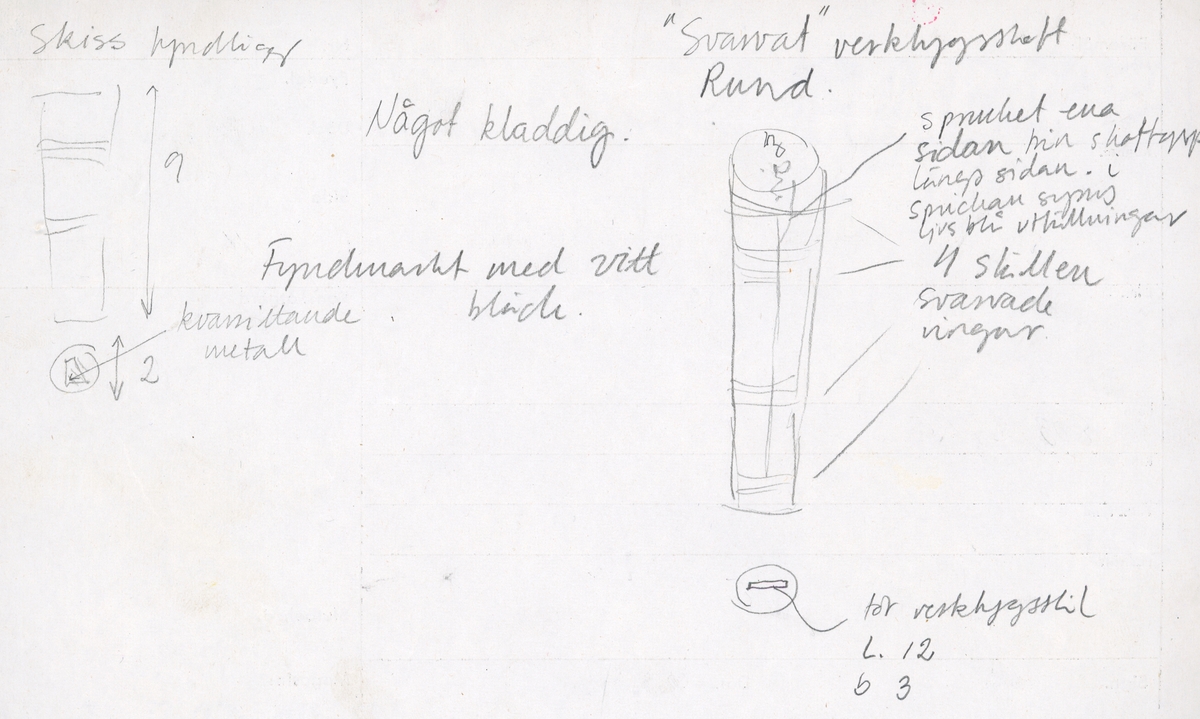 Skiss fyndligg
9
kvarsittande
metall
2
Något kladdig.
Fyndmärkt med vitt
bläck.
"Svarvat" verktygsskaft
Rund.
sprucket ena
sidan från skaftgrop
längs sidan. i
sprickan syns
ljusblå utfällningar
4 ställen
svarvade
ringar
för verktygsstål
L. 12
b 3